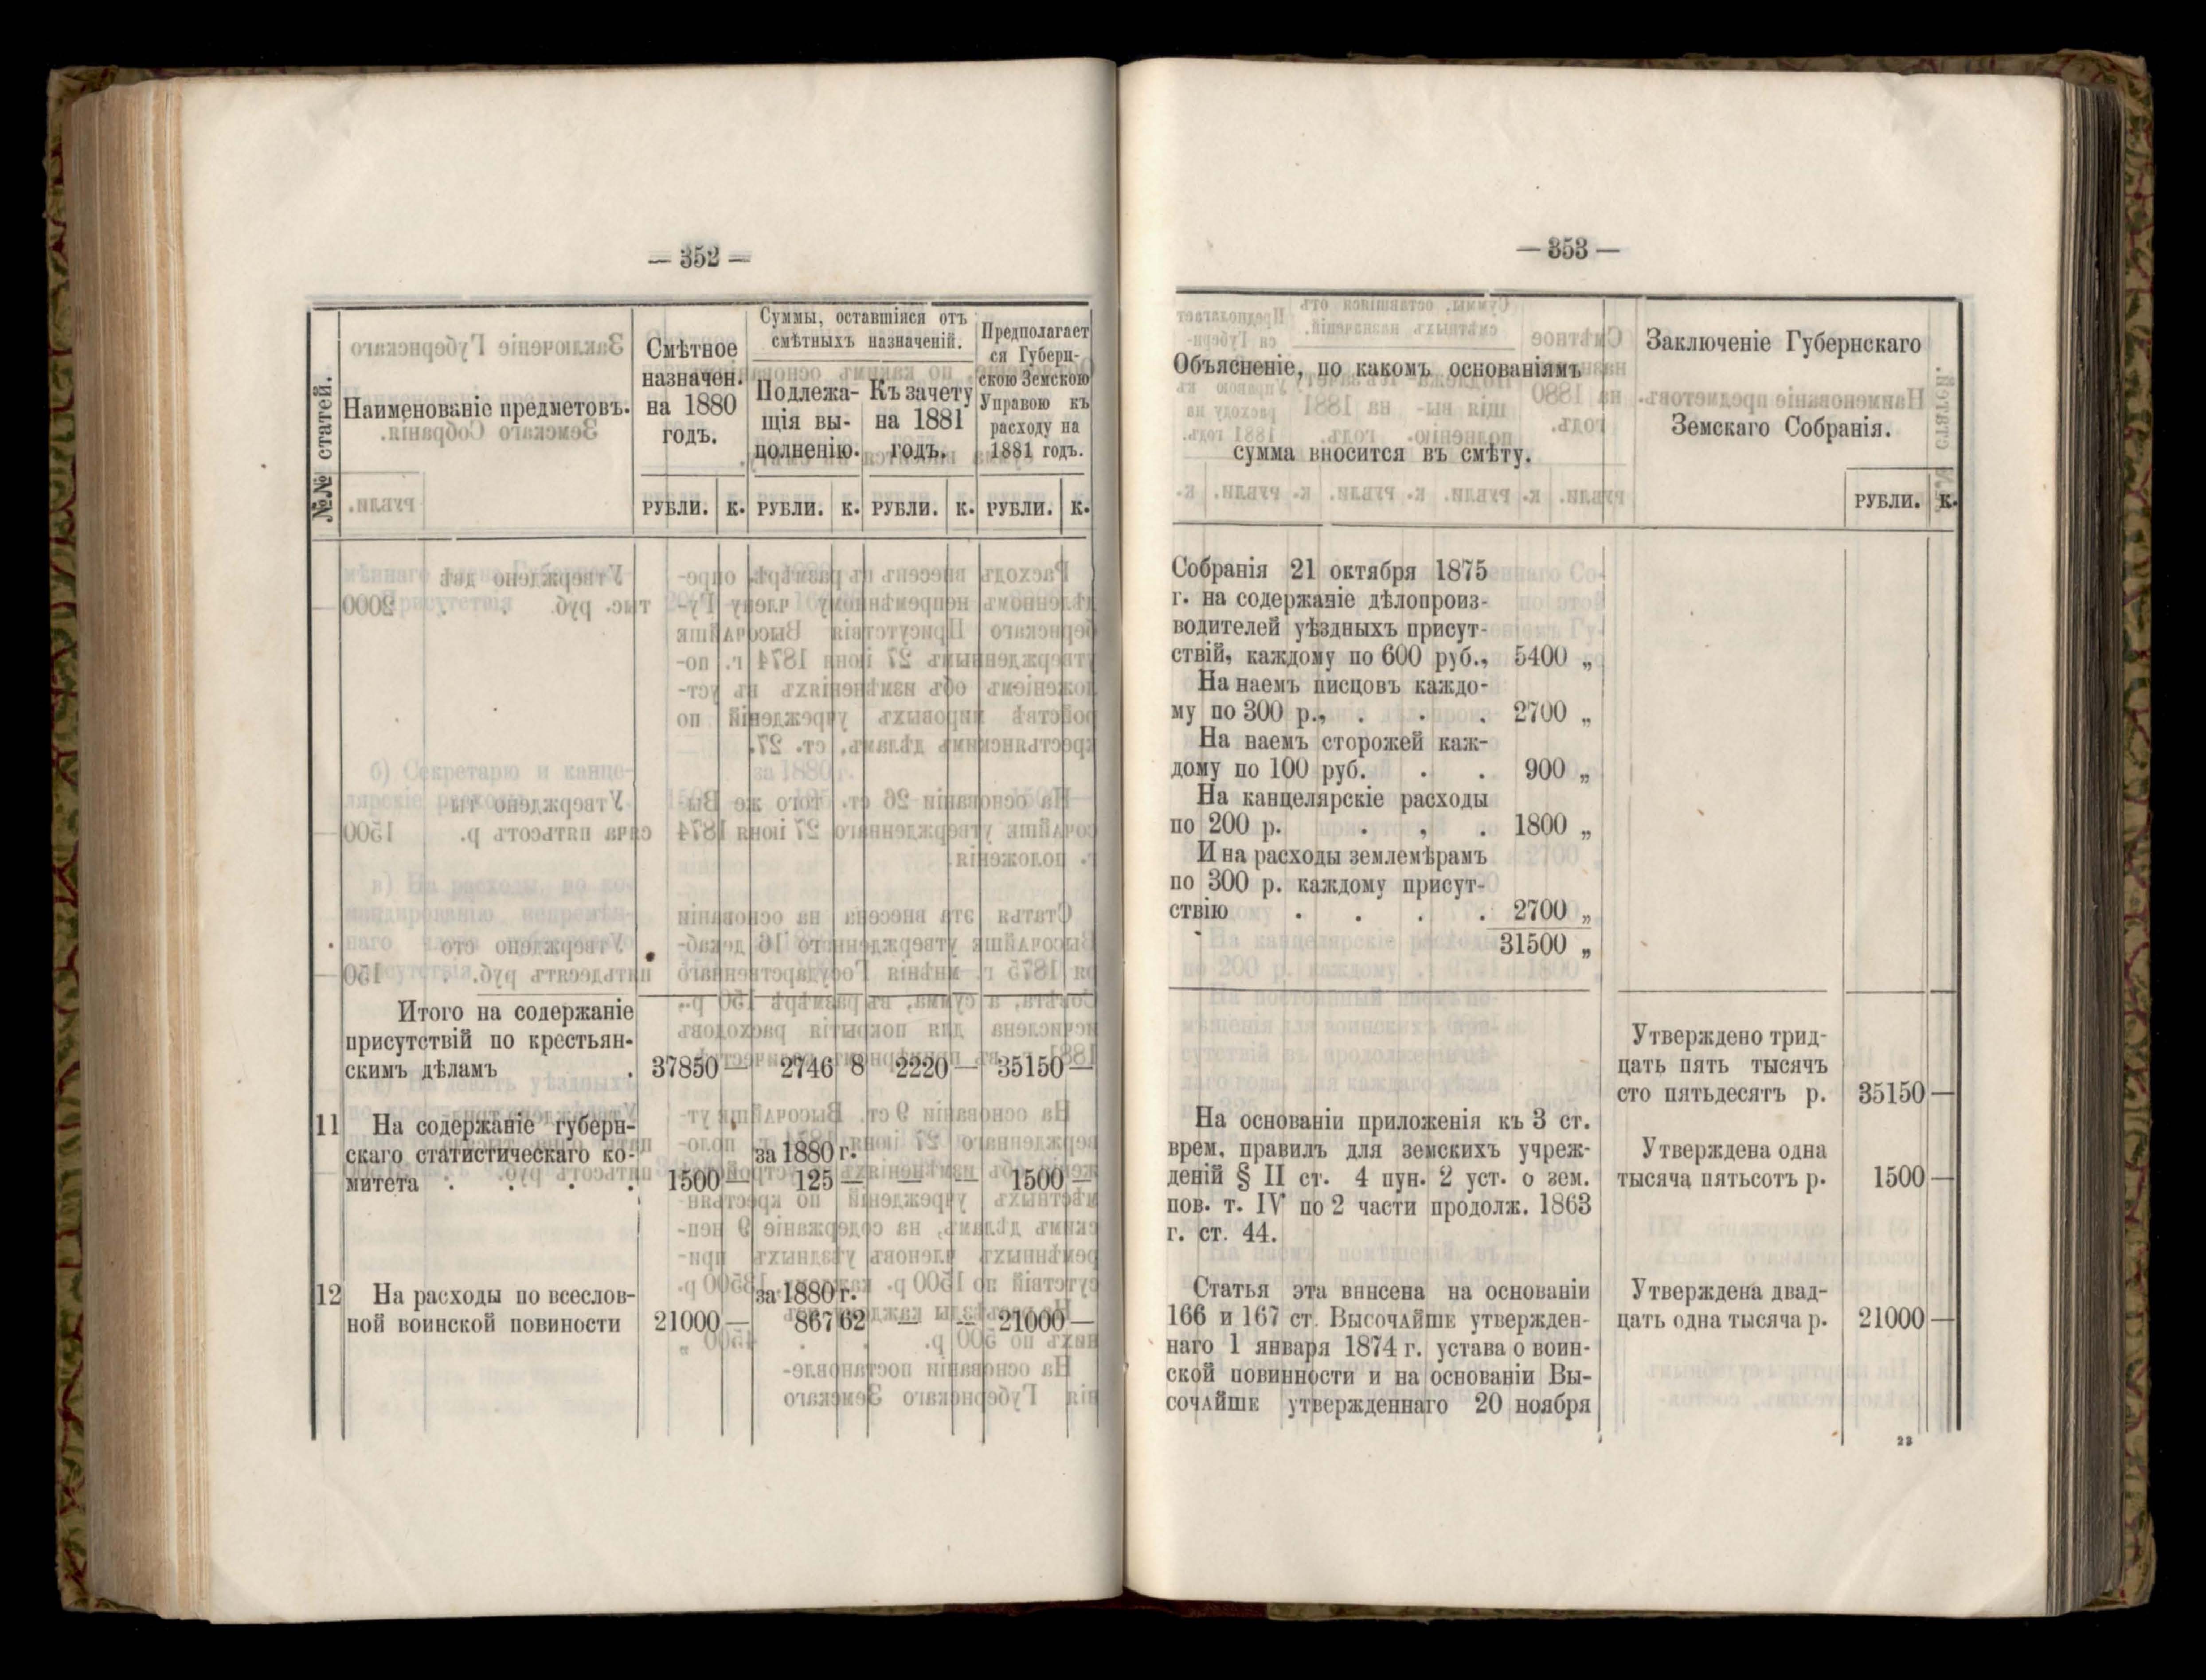 — 352 —
№№ статей.
Наименованіе предметовъ.
Смѣтное
назначен.
на 1880
годъ.
Суммы, оставшіяся отъ
смѣтныхъ назначеній.
Подлежа-
щія вы-
полненію.
Къ зачету
на 1881
годъ.
Предполагает
ся Губерн-
скою Земскою
Управою къ
расходу на
1881 годъ.
РУБЛИ. К. РУБЛИ. К. РУБЛИ. К. РУБЛИ. К.
Итого на содержаніе
присутствій по крестьян-
скимъ дѣламъ . 37850 — 2746 8 2220 — 35150 —
11 На содержаніе губерн-
скаго статистическаго ко- за 1880 г.
митета . . . . 1500 — 125 — — — 1500 —
12 На расходы по всеслов- за 1880 г.
ной воинской повиности 21000 — 867 62 — — 21000 —
— 353 —
Объясненіе, по какомъ основаніямъ
сумма вносится въ смѣту.
Заключеніе Губернскаго
Земскаго Собранія.
РУБЛИ. К.
Собранія 21 октября 1875
г. на содержаніе дѣлопроиз-
водителей уѣздныхъ присут-
ствій, каждому по 600 руб., 5400 „
На наемъ писцовъ каждо-
му по 300 р., . . . 2700 „
На наемъ сторожей каж-
дому по 100 руб. . . 900 „
На канцелярскіе расходы
по 200 р. . , . 1800 „
И на расходы землемѣрамъ
по 300 р. каждому присут-
ствію . . . . 2700 „
31500 „
Утверждено трид-
цать пять тысячъ
сто пятьдесятъ р. 35150 —
На основаніи приложенія къ 3 ст.
врем. правилъ для земскихъ учреж-
деній § II ст. 4 пун. 2 уст. о зем.
пов. т. IV по 2 части продолж. 1863
г. ст. 44.
Утверждена одна
тысяча пятьсотъ р. 1500 —
Статья эта внисена на основаніи
166 и 167 ст. ВЫСОЧАЙШЕ утвержден-
наго 1 января 1874 г. устава о воин-
ской повинности и на основаніи ВЫ-
СОЧАЙШЕ утвержденнаго 20 ноября
Утверждена двад-
цать одна тысяча р. 21000 —
23